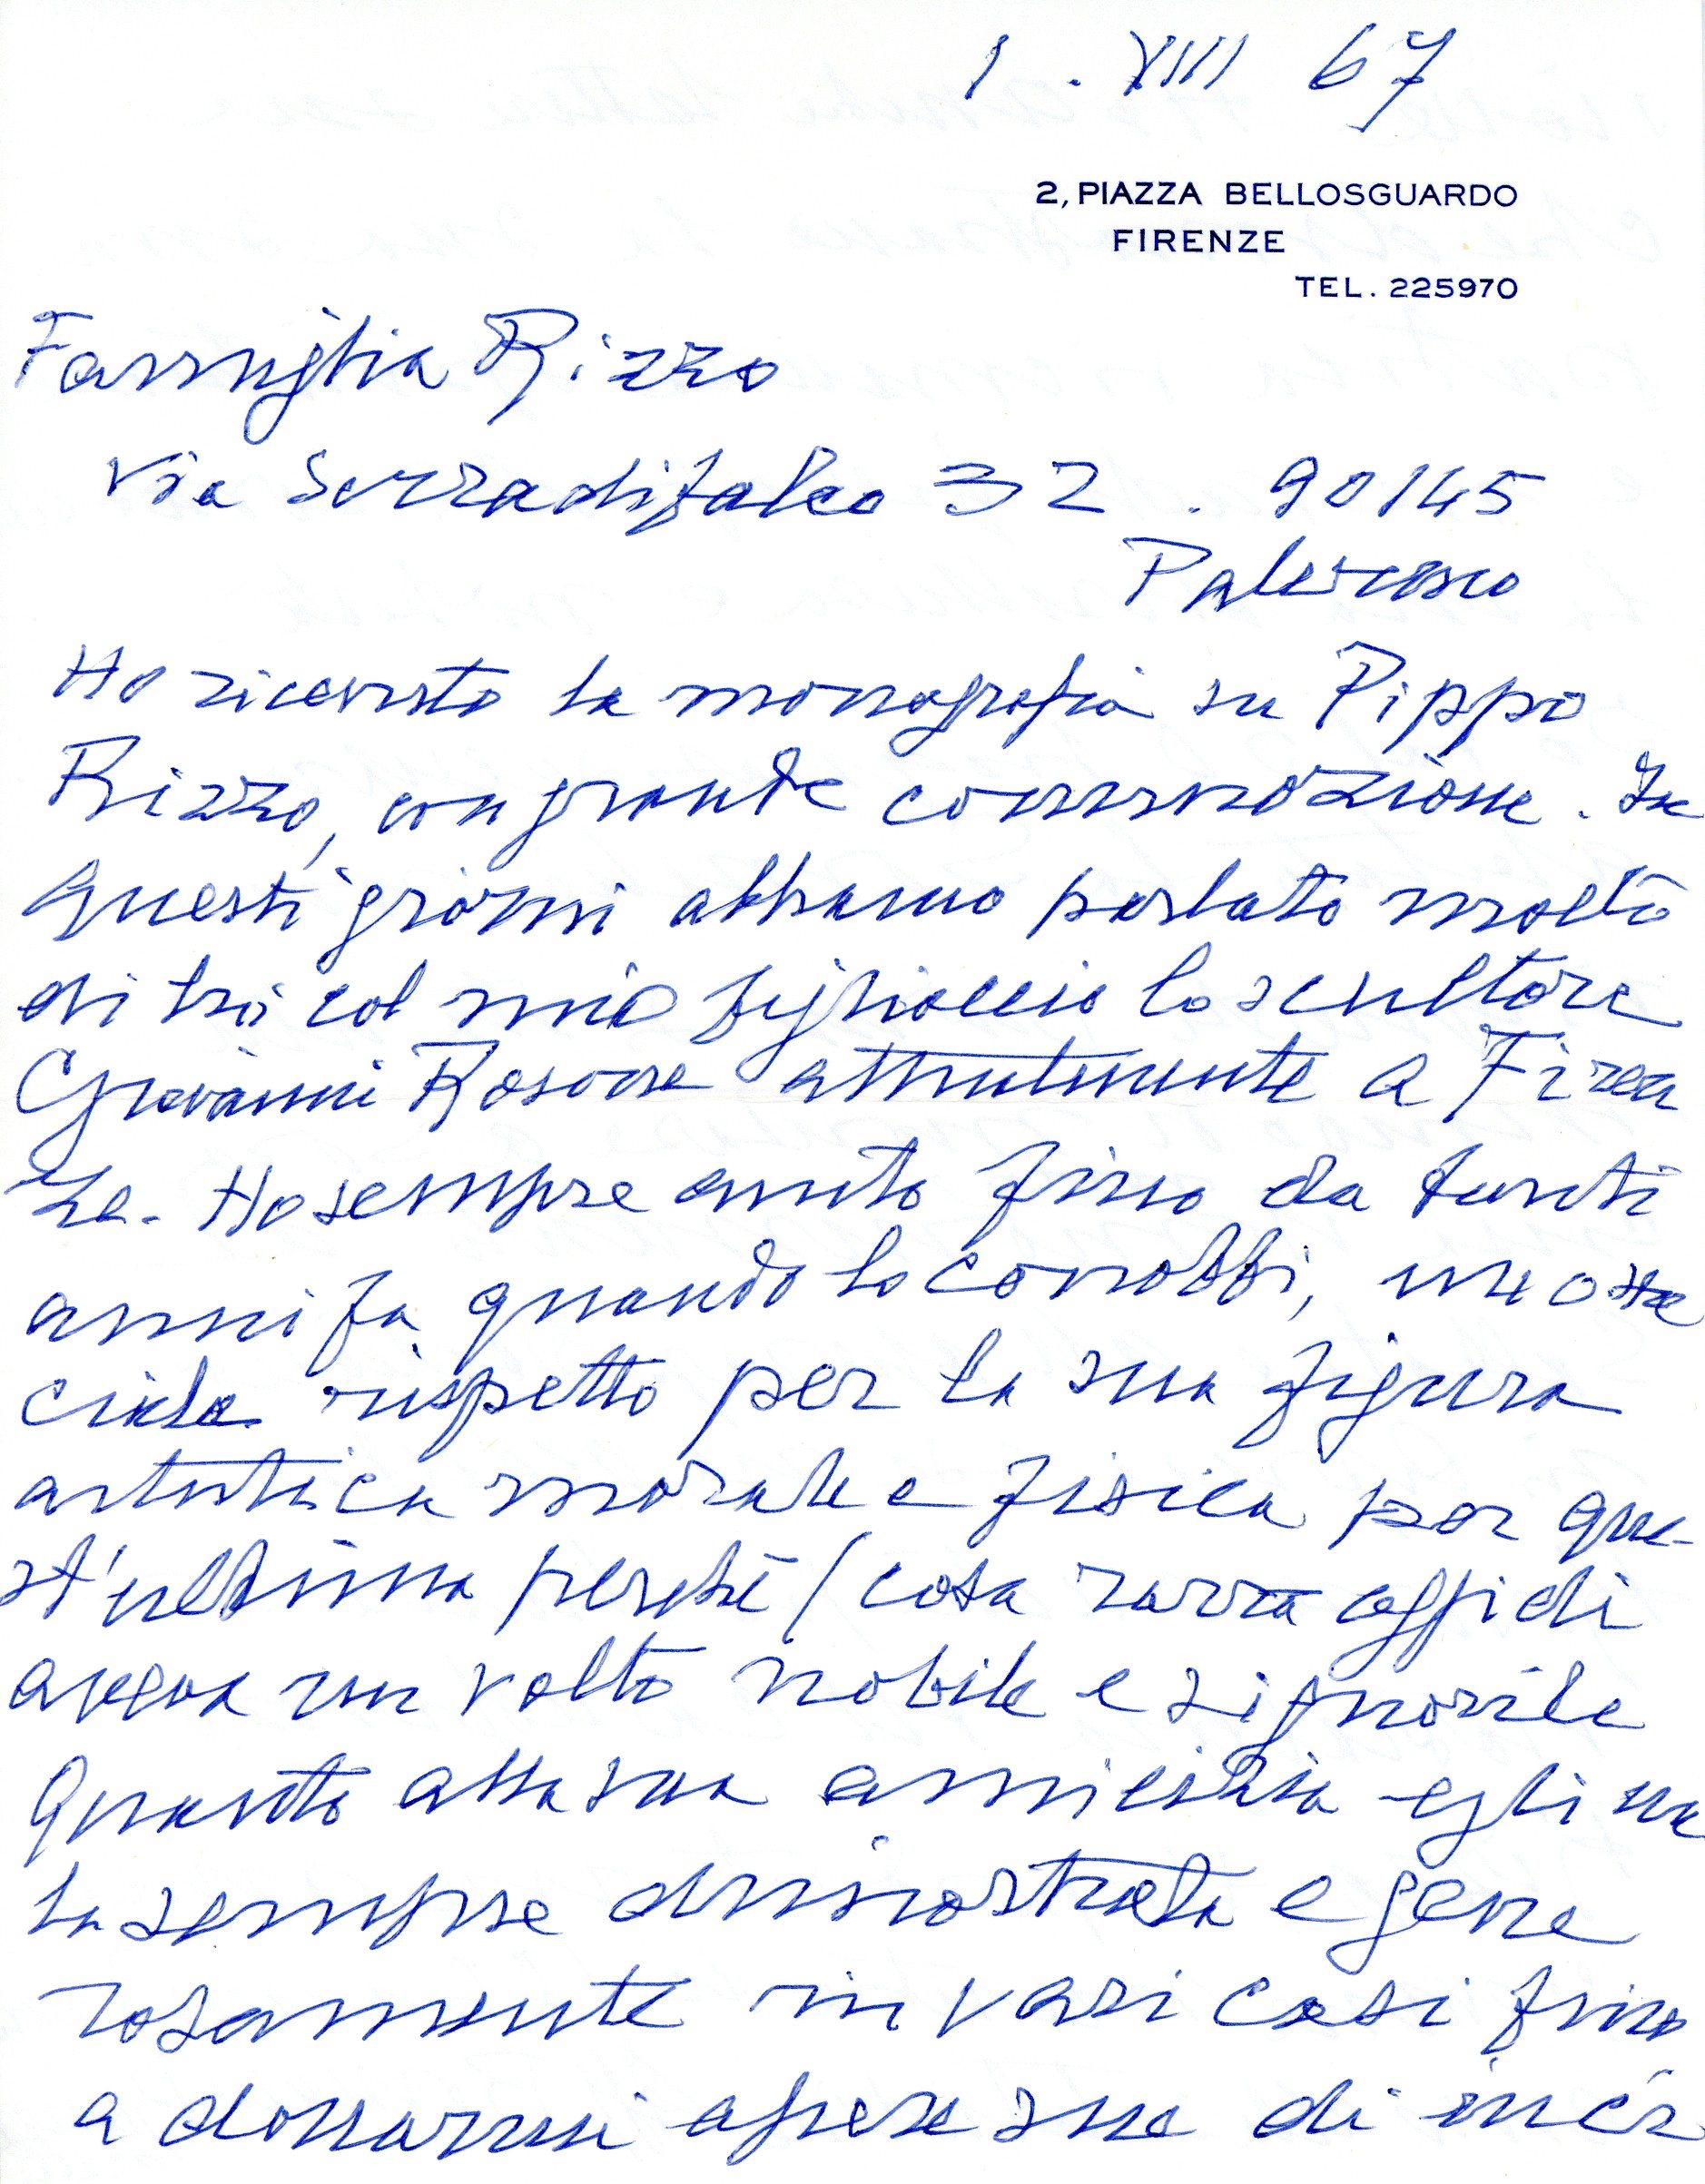 1 . VIII 67
2, PIAZZA BELLOSGUARDO
FIRENZE
TEL. 225970
Famiglia Rizzo
Via Serradifalco 32 . 90145
Palermo
Ho ricevuto la monografia su Pippo
Rizzo, con grande commozione. In
questi giorni abbiamo parlato molto
di lui col mio figlioccio lo scultore
Giovanni Rosone attualmente a Firen
ze. Ho sempre avuto fino da tanti
anni fa quando lo conobbi, una spe
ciale rispetto per la sua figura
artistica morale e fisica per que-
st'ultima perché / cosa rara oggi di
aveva un volto nobile e signorile
Quanto alla sua amicizia egli me
la sempre dimostrata e gene
rosamente in vari casi fino
a donarmi opere sue di